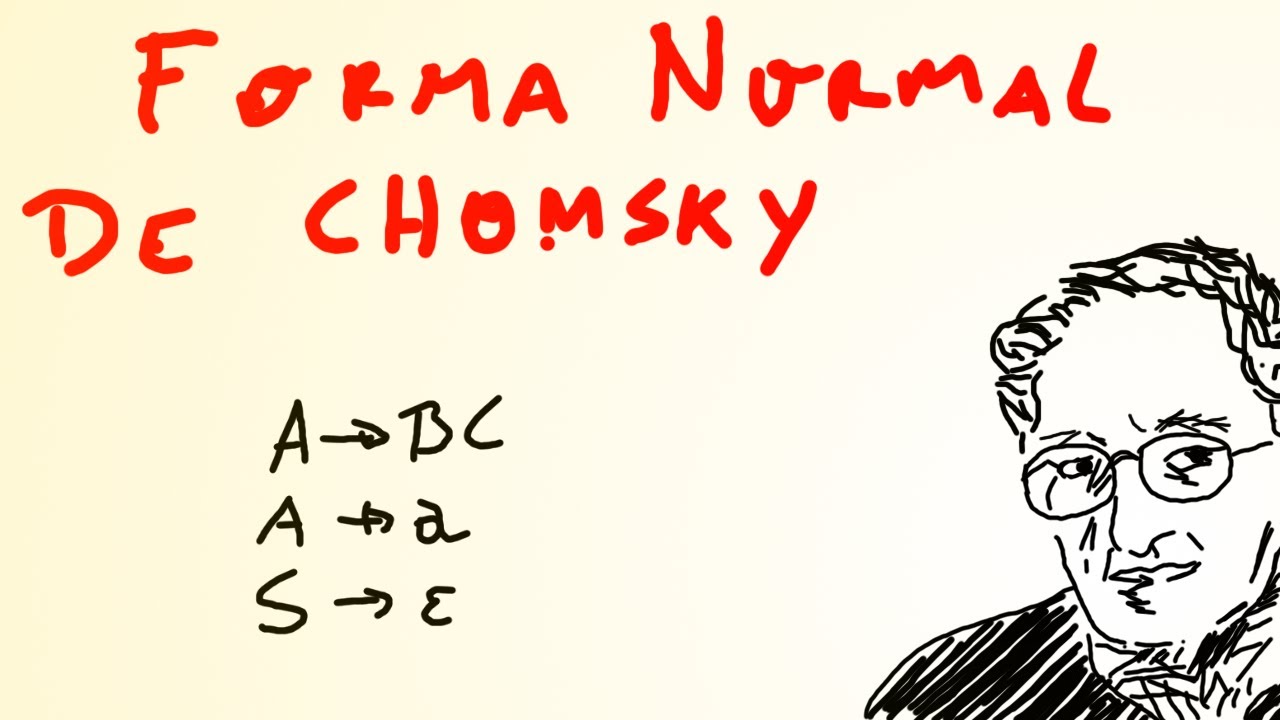 FORMA NORMAL
DE CHOMSKY
A→BC
A→a
S→ε